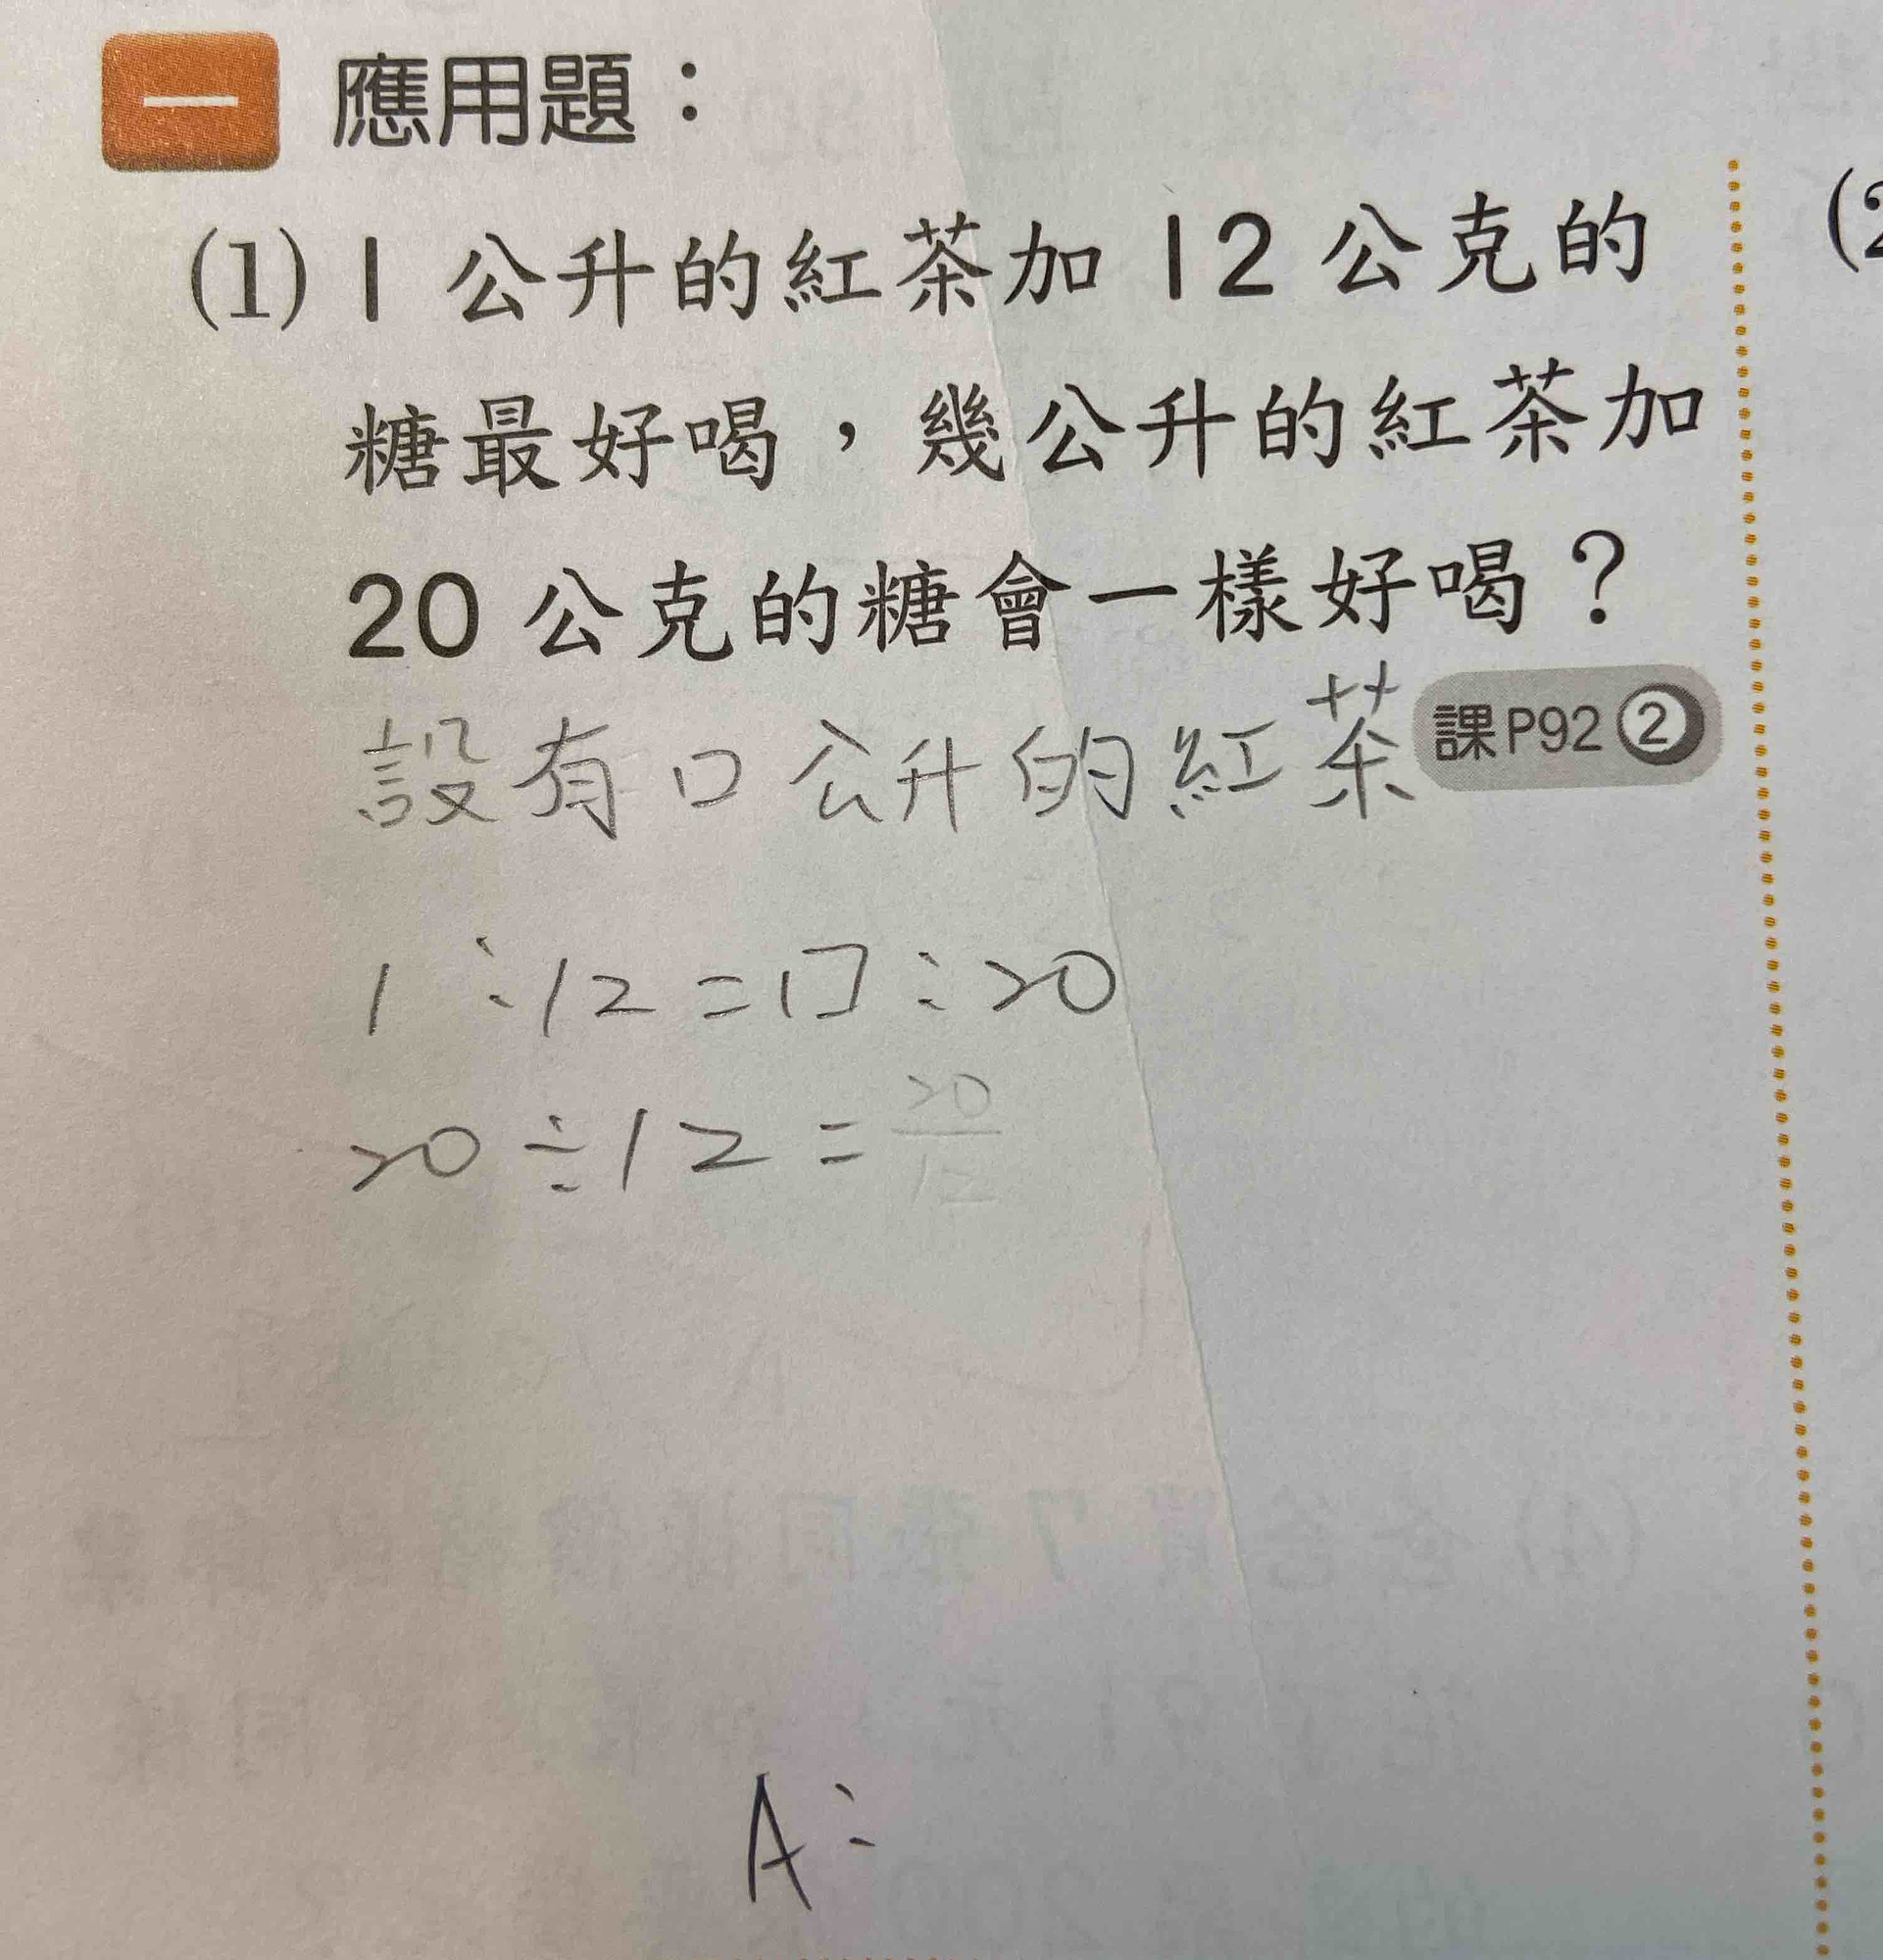 一 應用題：
(1) 1 公升的紅茶加 12 公克的
糖最好喝，幾公升的紅茶加
20 公克的糖會一樣好喝？
課P92②
設有口公升的紅茶
1:12=口:20
20÷12=20/12
A:
(2